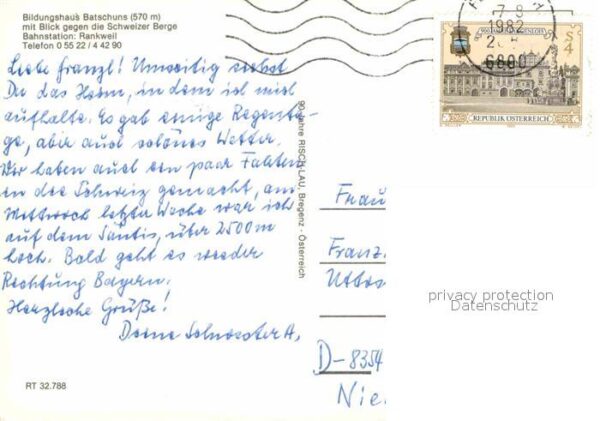 Bildungshaus Batschuns (570 m)
mit Blick gegen die Schweizer Berge
Bahnstation: Rankweil
Telefon 0 55 22 / 4 42 90
Liebe Franzl! Umseitig siehst
Du das Heim, in dem ich mich
aufhalte. Es gab einige Regenta-
ge, aber auch schönes Wetter.
Wir haben auch ein paar Fahrten
in die Schweiz gemacht, am
Mittwoch letzter Woche war ich
auf dem Säntis, über 2500 m
hoch. Bald geht es wieder
Richtung Bayern.
Herzliche Grüße!
Deine Schwester A.
RT 32.788
90 Jahre RISCH-LAU, Bregenz · Österreich
7. 8.
1982
6800
S 4
REPUBLIK ÖSTERREICH
Frau
Franz
privacy protection
Datenschutz
D-8354